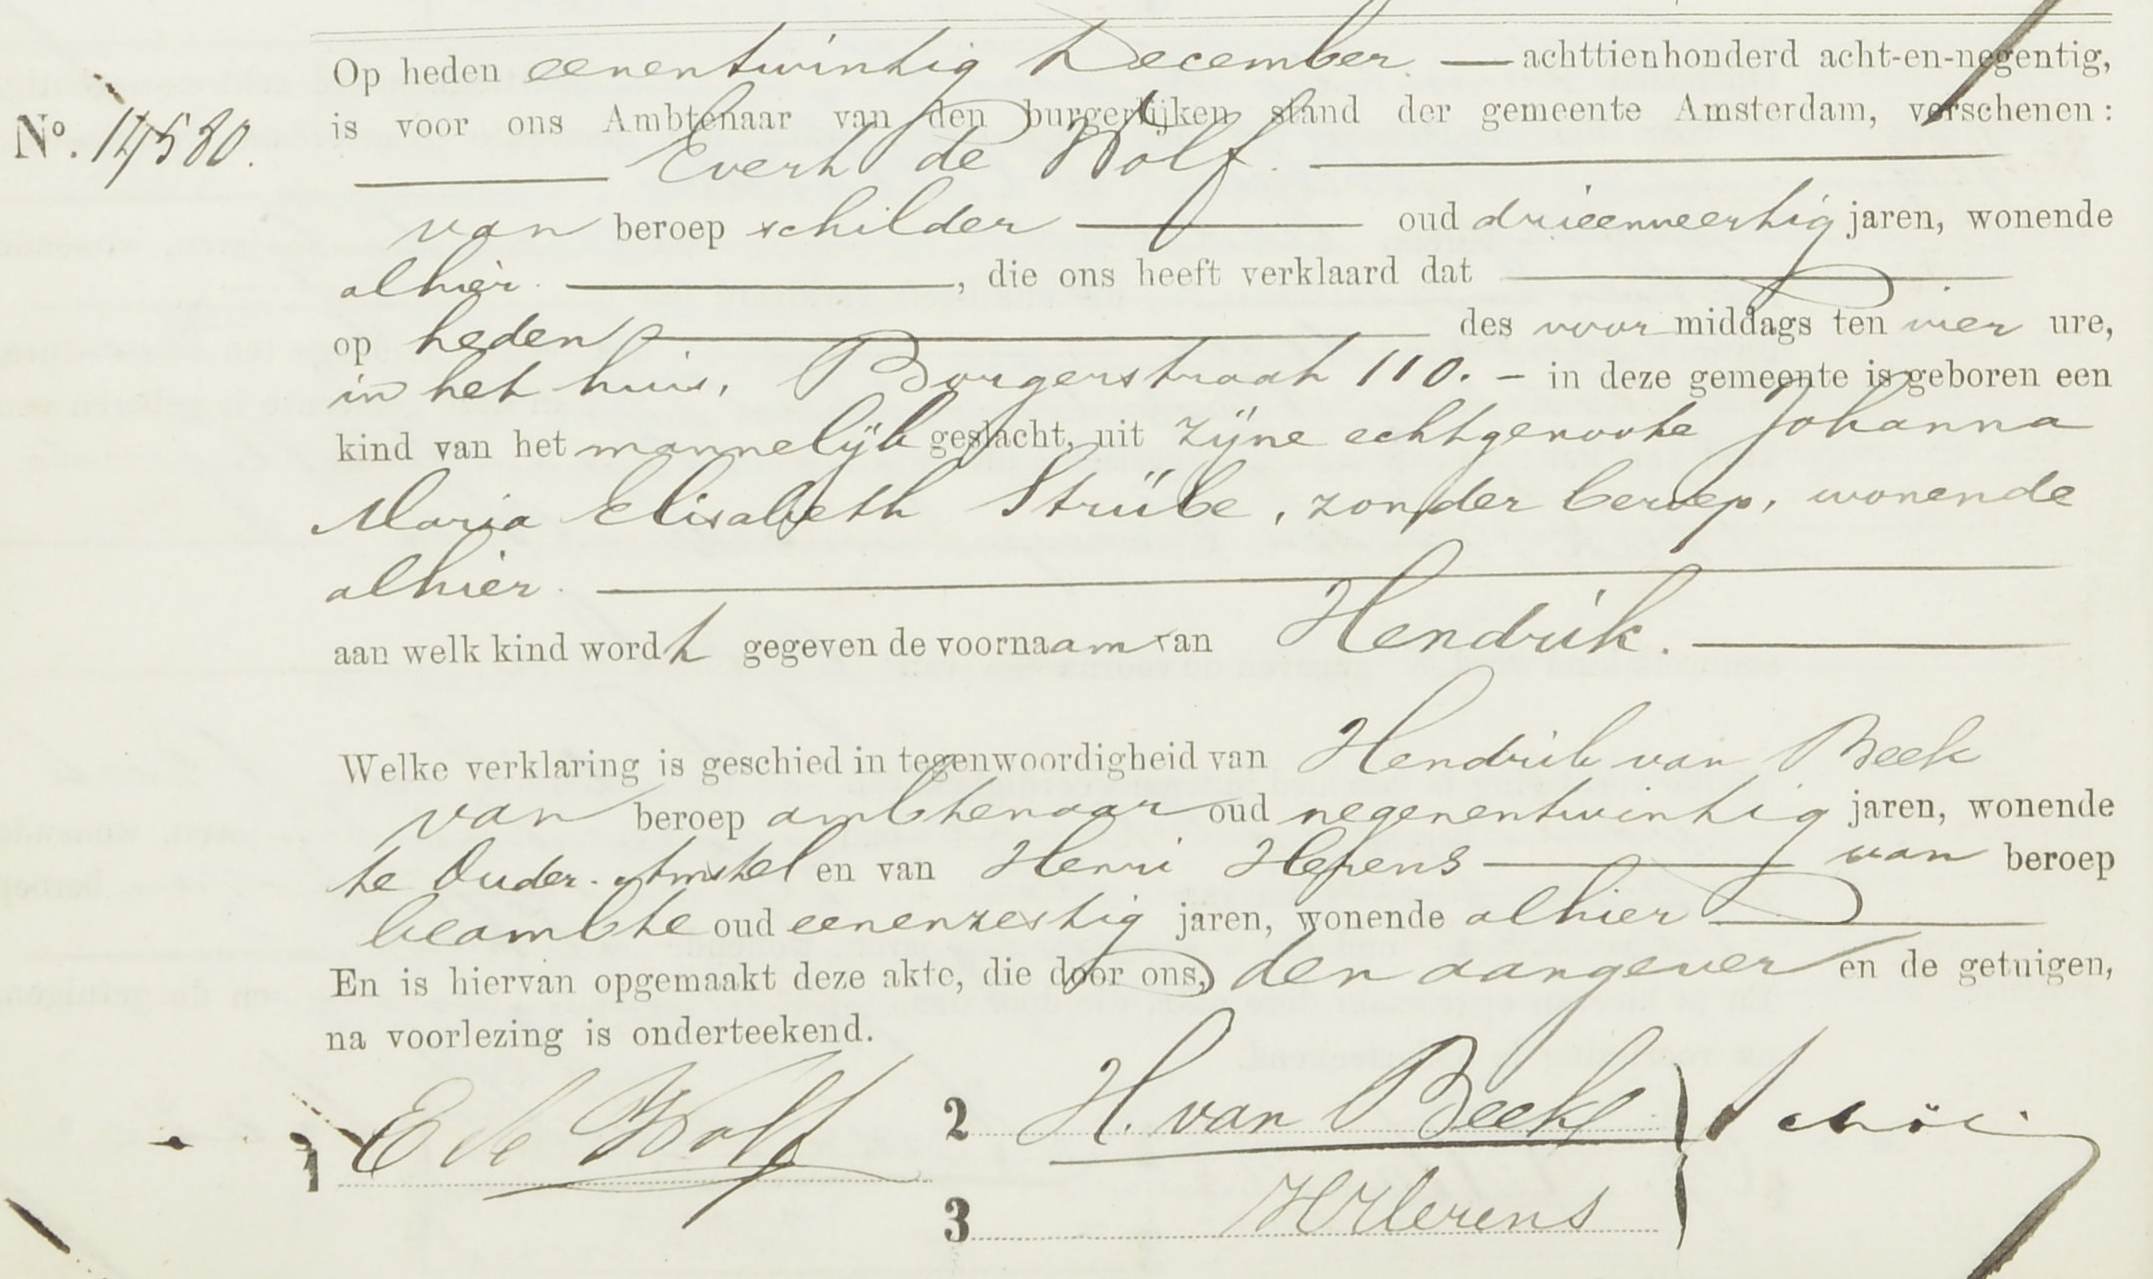 Op heden eenentwintig December — achttienhonderd acht-en-negentig,
No. 14530. is voor ons Ambtenaar van den burgerlijken stand der gemeente Amsterdam, verschenen:
Evert de Wolf.
van beroep schilder oud drieenveertig jaren, wonende
alhier. , die ons heeft verklaard dat
op heden des voor middags ten vier ure,
in het huis, Borgerstraat 110. – in deze gemeente is geboren een
kind van het mannelijk geslacht, uit zijne echtgenoote Johanna
Maria Elisabeth Strübe, zonder beroep, wonende
alhier.
aan welk kind wordt gegeven de voornaam van Hendrik.
Welke verklaring is geschied in tegenwoordigheid van Hendrik van Beek
van beroep ambtenaar oud negenentwintig jaren, wonende
te Ouder-Amstel en van Henri Herens van beroep
beambte oud eenenzestig jaren, wonende alhier
En is hiervan opgemaakt deze akte, die door ons, den aangever en de getuigen,
na voorlezing is onderteekend.
1 E de Wolf 2 H. van Beek
3 H Herens